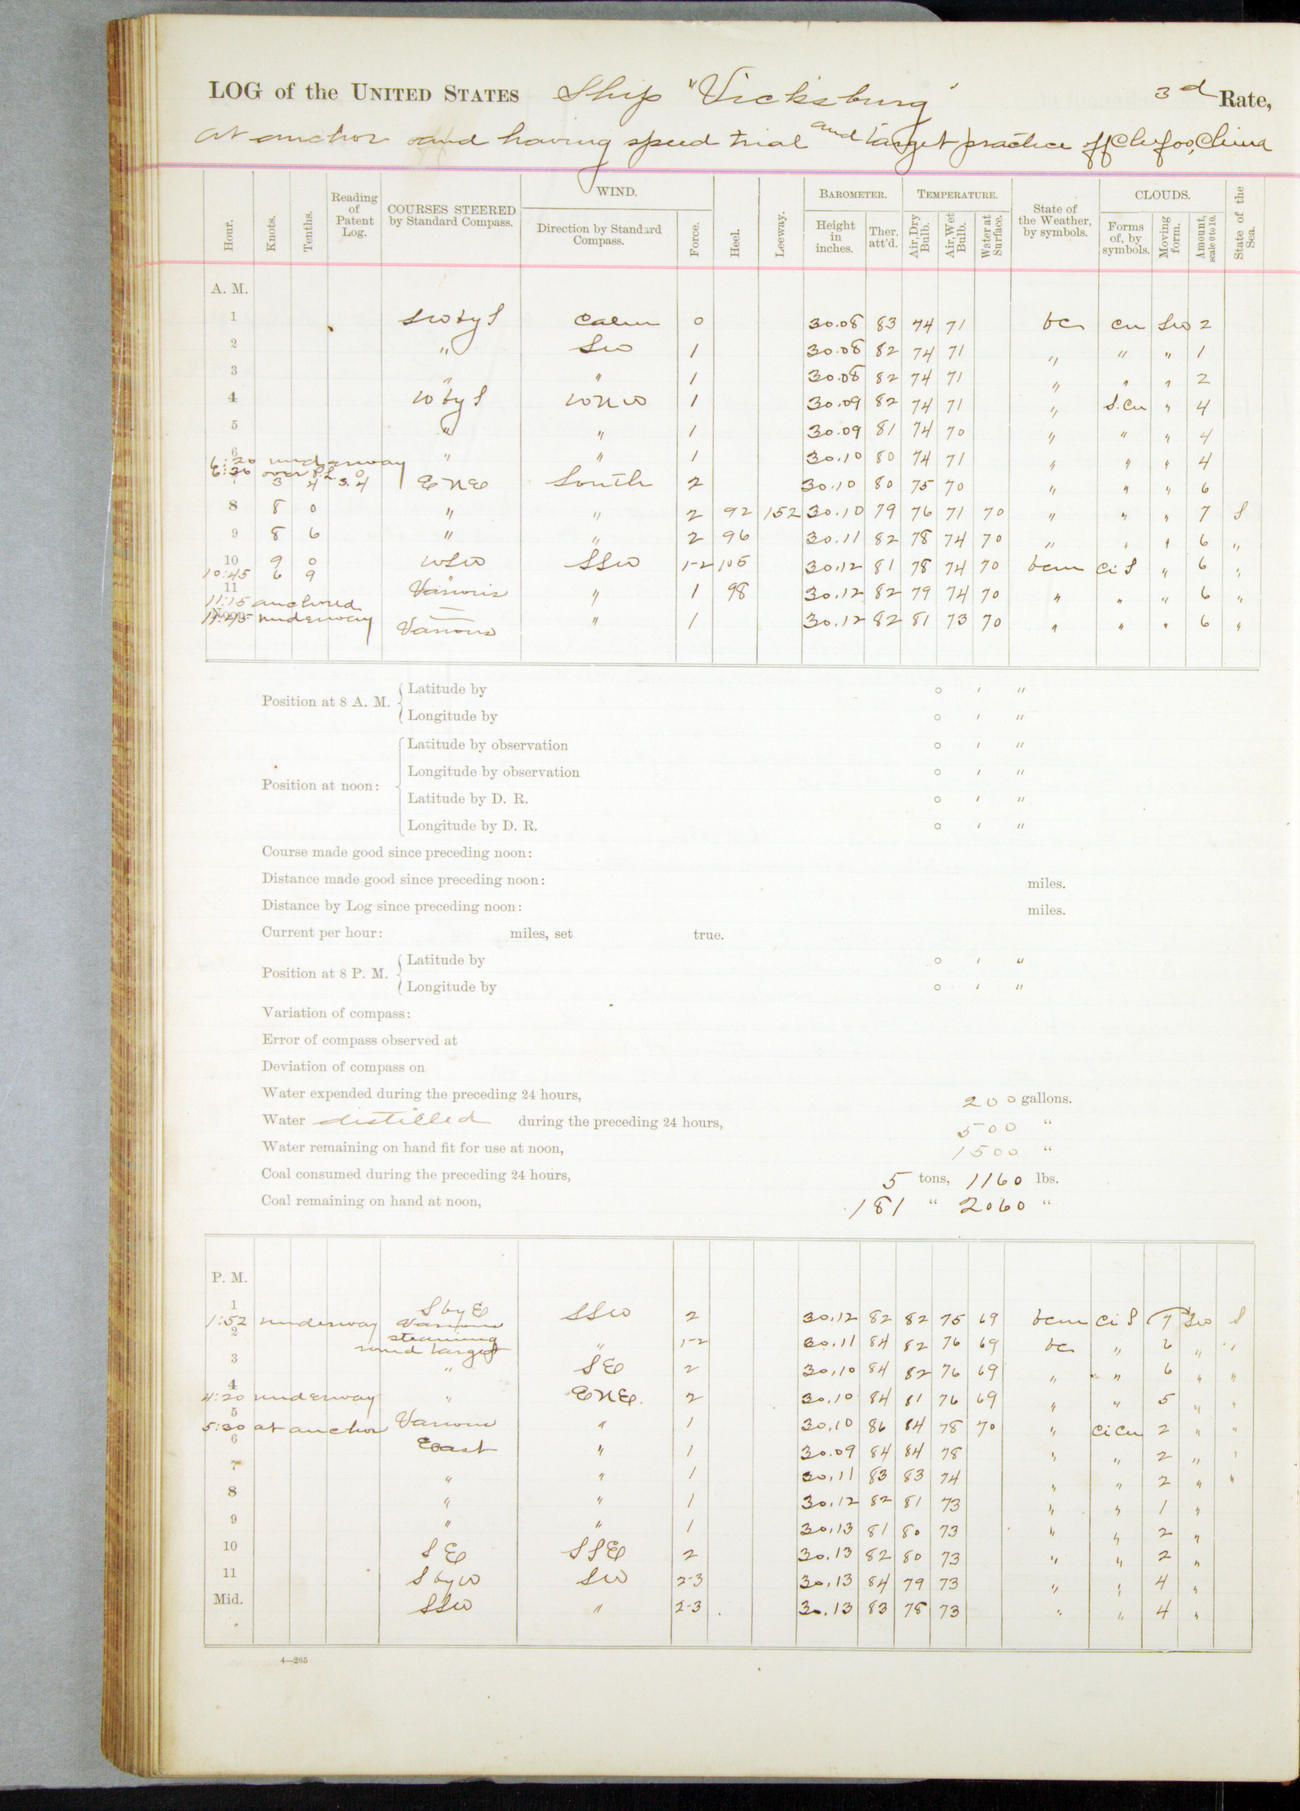 LOG of the UNITED STATES Ship "Vicksburg" 3d Rate,
At anchor and having speed trial and target practice off Chefoo, China
Hour. Knots. Tenths. Reading of Patent Log. COURSES STEERED by Standard Compass. WIND. Direction by Standard Compass. Force. Heel. Leeway. BAROMETER. Height in inches. Ther. att'd. TEMPERATURE. Air, Dry Bulb. Air, Wet Bulb. Water at Surface. State of the Weather, by symbols. CLOUDS. Forms of, by symbols. Moving form. Amount, scale 0 to 10. State of the Sea.
A. M.
1 SW by S Calm 0 30.08 83 74 71 bc cu SW 2
2 " SW 1 30.08 82 74 71 " " " 1
3 " " 1 30.08 82 74 71 " " " 2
4 W by S WNW 1 30.09 82 74 71 " S.cu " 4
5 " " 1 30.09 81 74 70 " " " 4
6 " " 1 30.10 80 74 71 " " " 4
6:20 underway
6:36 over P.L. 0
3 4 3.4 ENE South 2 30.10 80 75 70 " " " 6
8 8 0 " " 2 92 152 30.10 79 76 71 70 " " " 7 S
9 8 6 " " 2 96 30.11 82 78 74 70 " " " 6 "
10 9 0 WSW SSW 1-2 105 30.12 81 78 74 70 bcm Ci S " 6 "
10:45 6 9
11 Various " 1 98 30.12 82 79 74 70 " " " 6 "
11:15 anchored
Noon. Various " 1 30.12 82 81 73 70 " " " 6 "
11:45 underway
Position at 8 A. M. Latitude by ° ' "
Longitude by ° ' "
Position at noon: Latitude by observation ° ' "
Longitude by observation ° ' "
Latitude by D. R. ° ' "
Longitude by D. R. ° ' "
Course made good since preceding noon:
Distance made good since preceding noon: miles.
Distance by Log since preceding noon: miles.
Current per hour: miles, set true.
Position at 8 P. M. Latitude by ° ' "
Longitude by ° ' "
Variation of compass:
Error of compass observed at
Deviation of compass on
Water expended during the preceding 24 hours, 200 gallons.
Water distilled during the preceding 24 hours, 500 "
Water remaining on hand fit for use at noon, 1500 "
Coal consumed during the preceding 24 hours, 5 tons, 1160 lbs.
Coal remaining on hand at noon, 181 " 2060 "
P. M.
1 S by E SSW 2 30.12 82 82 75 69 bcm Ci S 7 SW S
1:52 underway Various
2 steaming round target " 1-2 30.11 84 82 76 69 bc " 6 " "
3 " SE 2 30.10 84 82 76 69 " " 6 " "
4 " ENE. 2 30.10 84 81 76 69 " " 5 " "
4:20 underway
5 Various " 1 30.10 86 84 78 70 " Ci Cu 2 " "
5:30 at anchor
6 East " 1 30.09 84 84 78 " " 2 " "
7 " " 1 30.11 83 83 74 " " 2 " "
8 " " 1 30.12 82 81 73 " " 1 "
9 " " 1 30.13 81 80 73 " " 2 "
10 SE SSE 2 30.13 82 80 73 " " 2 "
11 S by W SW 2-3 30.13 84 79 73 " " 4 "
Mid. SSW " 2-3 30.13 83 78 73 " " 4 "
4—265